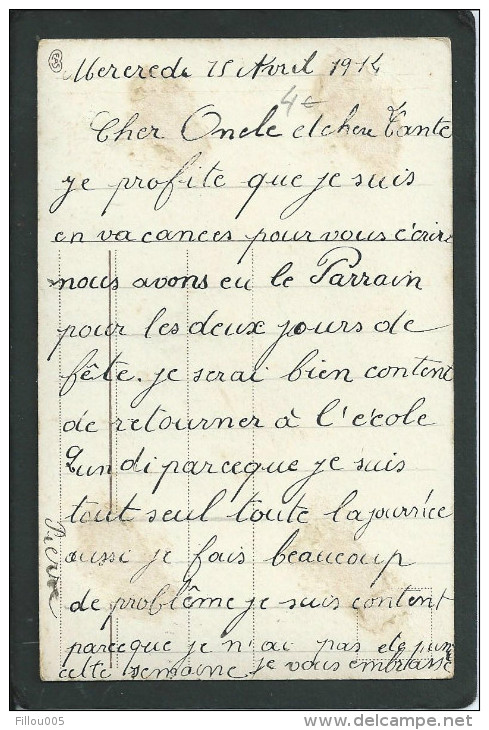 Mercredi 15 Avril 1914
4€
Cher Oncle et chere Tante
je profite que je suis
en vacances pour vous écrire
nous avons eu le Parrain
pour les deux jours de
fête. je serai bien content
de retourner à l'école
Lundi parceque je suis
tout seul toute la journée
aussi je fais beaucoup
de problême je suis content
parceque je n'ai pas de
cette semaine je vous embrasse
Pierre
Fillou005
www.delcampe.net